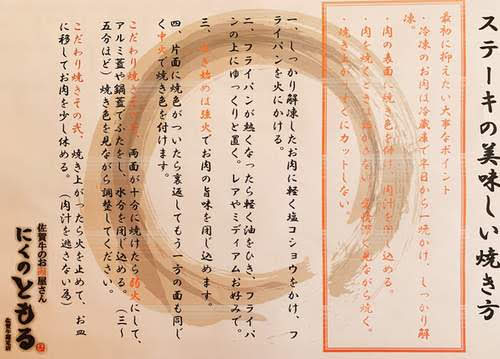 ステーキの美味しい焼き方
最初に抑えたい大事なポイント
・冷凍のお肉は冷蔵庫で半日から一晩かけ、しっかり解
凍。
・肉の表面に焼き色を付け、肉汁を閉じ込める。
・肉を焼くときは
見ながら焼く。
・焼き上が
すぐにカットしない。
一、しっかり解凍したお肉に軽く塩コショウをかけ、フ
ライパンを火にかける。
二、フライパンが熱くなったら軽く油をひき、フライパ
ンの上にゆっくりと置く。レアやミディアムお好みで。
三、焼き始めは強火でお肉の旨味を閉じ込めます。
四、片面に焼色がついたら裏返してもう一方の面も同じ
く中火で焼き色を付けます。
こだわり焼きその壱、両面が十分に焼けたら弱火にして、
アルミ蓋や鍋蓋でふたをし、水分を閉じ込める。(三〜
五分ほど)焼き色を見ながら調整してください。
こだわり焼きその弐、焼き上がったら火を止めて、お皿
に移してお肉を少し休める。(肉汁を逃さない為)
佐賀牛のお肉屋さん
にくのともる
佐賀牛指定店